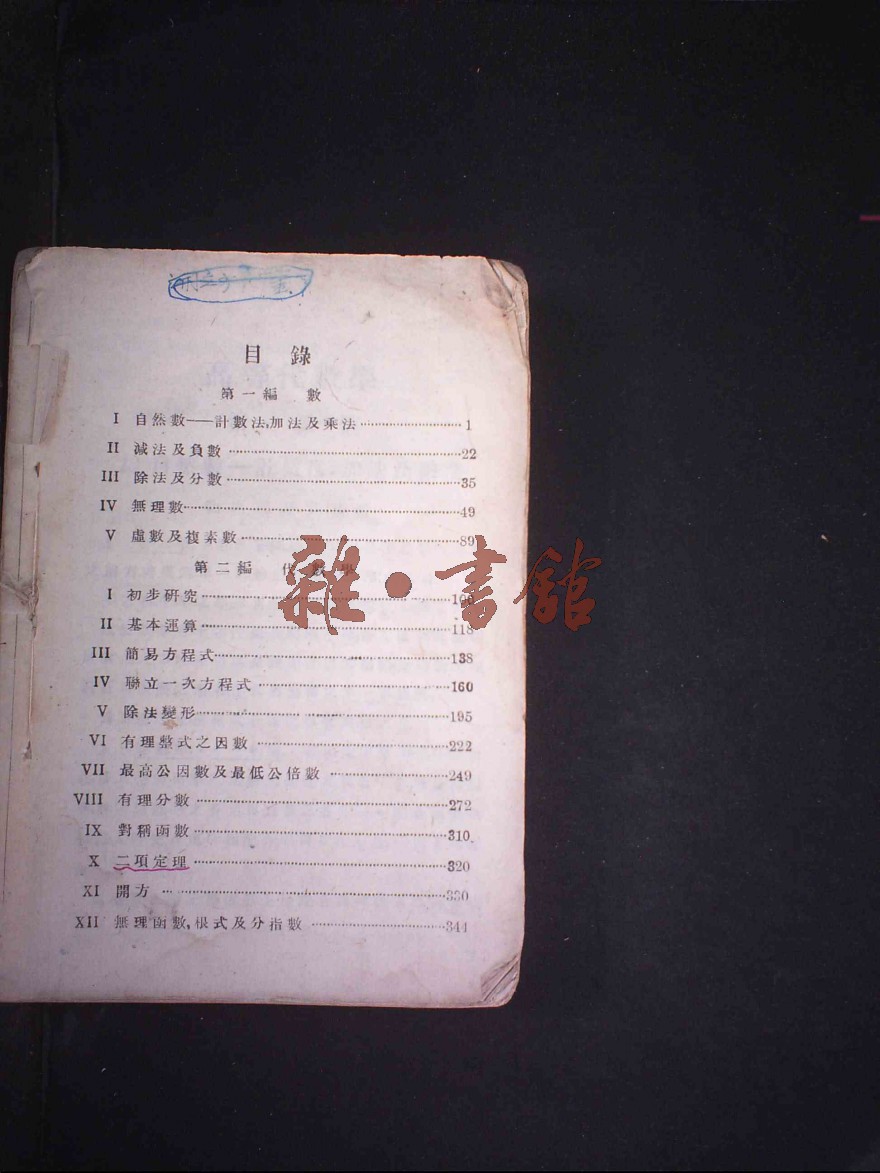 目錄
第一編 數
I 自然數——計數法,加法及乘法 ························ 1
II 減法及負數 ························ 22
III 除法及分數 ························ 35
IV 無理數 ························ 49
V 虛數及複素數 ························ 89
第二編 代數學
I 初步研究 ························
II 基本運算 ························ 118
III 簡易方程式 ························ 138
IV 聯立一次方程式 ························ 160
V 除法變形 ························ 195
VI 有理整式之因數 ························ 222
VII 最高公因數及最低公倍數 ························ 249
VIII 有理分數 ························ 272
IX 對稱函數 ························ 310
X 二項定理 ························ 320
XI 開方 ························ 330
XII 無理函數,根式及分指數 ························ 344
雜·書館